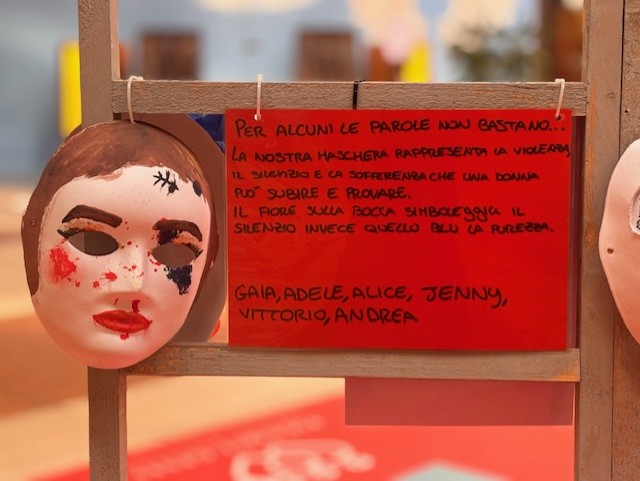 PER ALCUNI LE PAROLE NON BASTANO...
LA NOSTRA MASCHERA RAPPRESENTA LA VIOLENZA,
IL SILENZIO E LA SOFFERENZA CHE UNA DONNA
PUO' SUBIRE E PROVARE.
IL FIORE SULLA BOCCA SIMBOLEGGIA IL
SILENZIO INVECE QUELLO BLU LA PUREZZA.
GAIA, ADELE, ALICE, JENNY,
VITTORIO, ANDREA